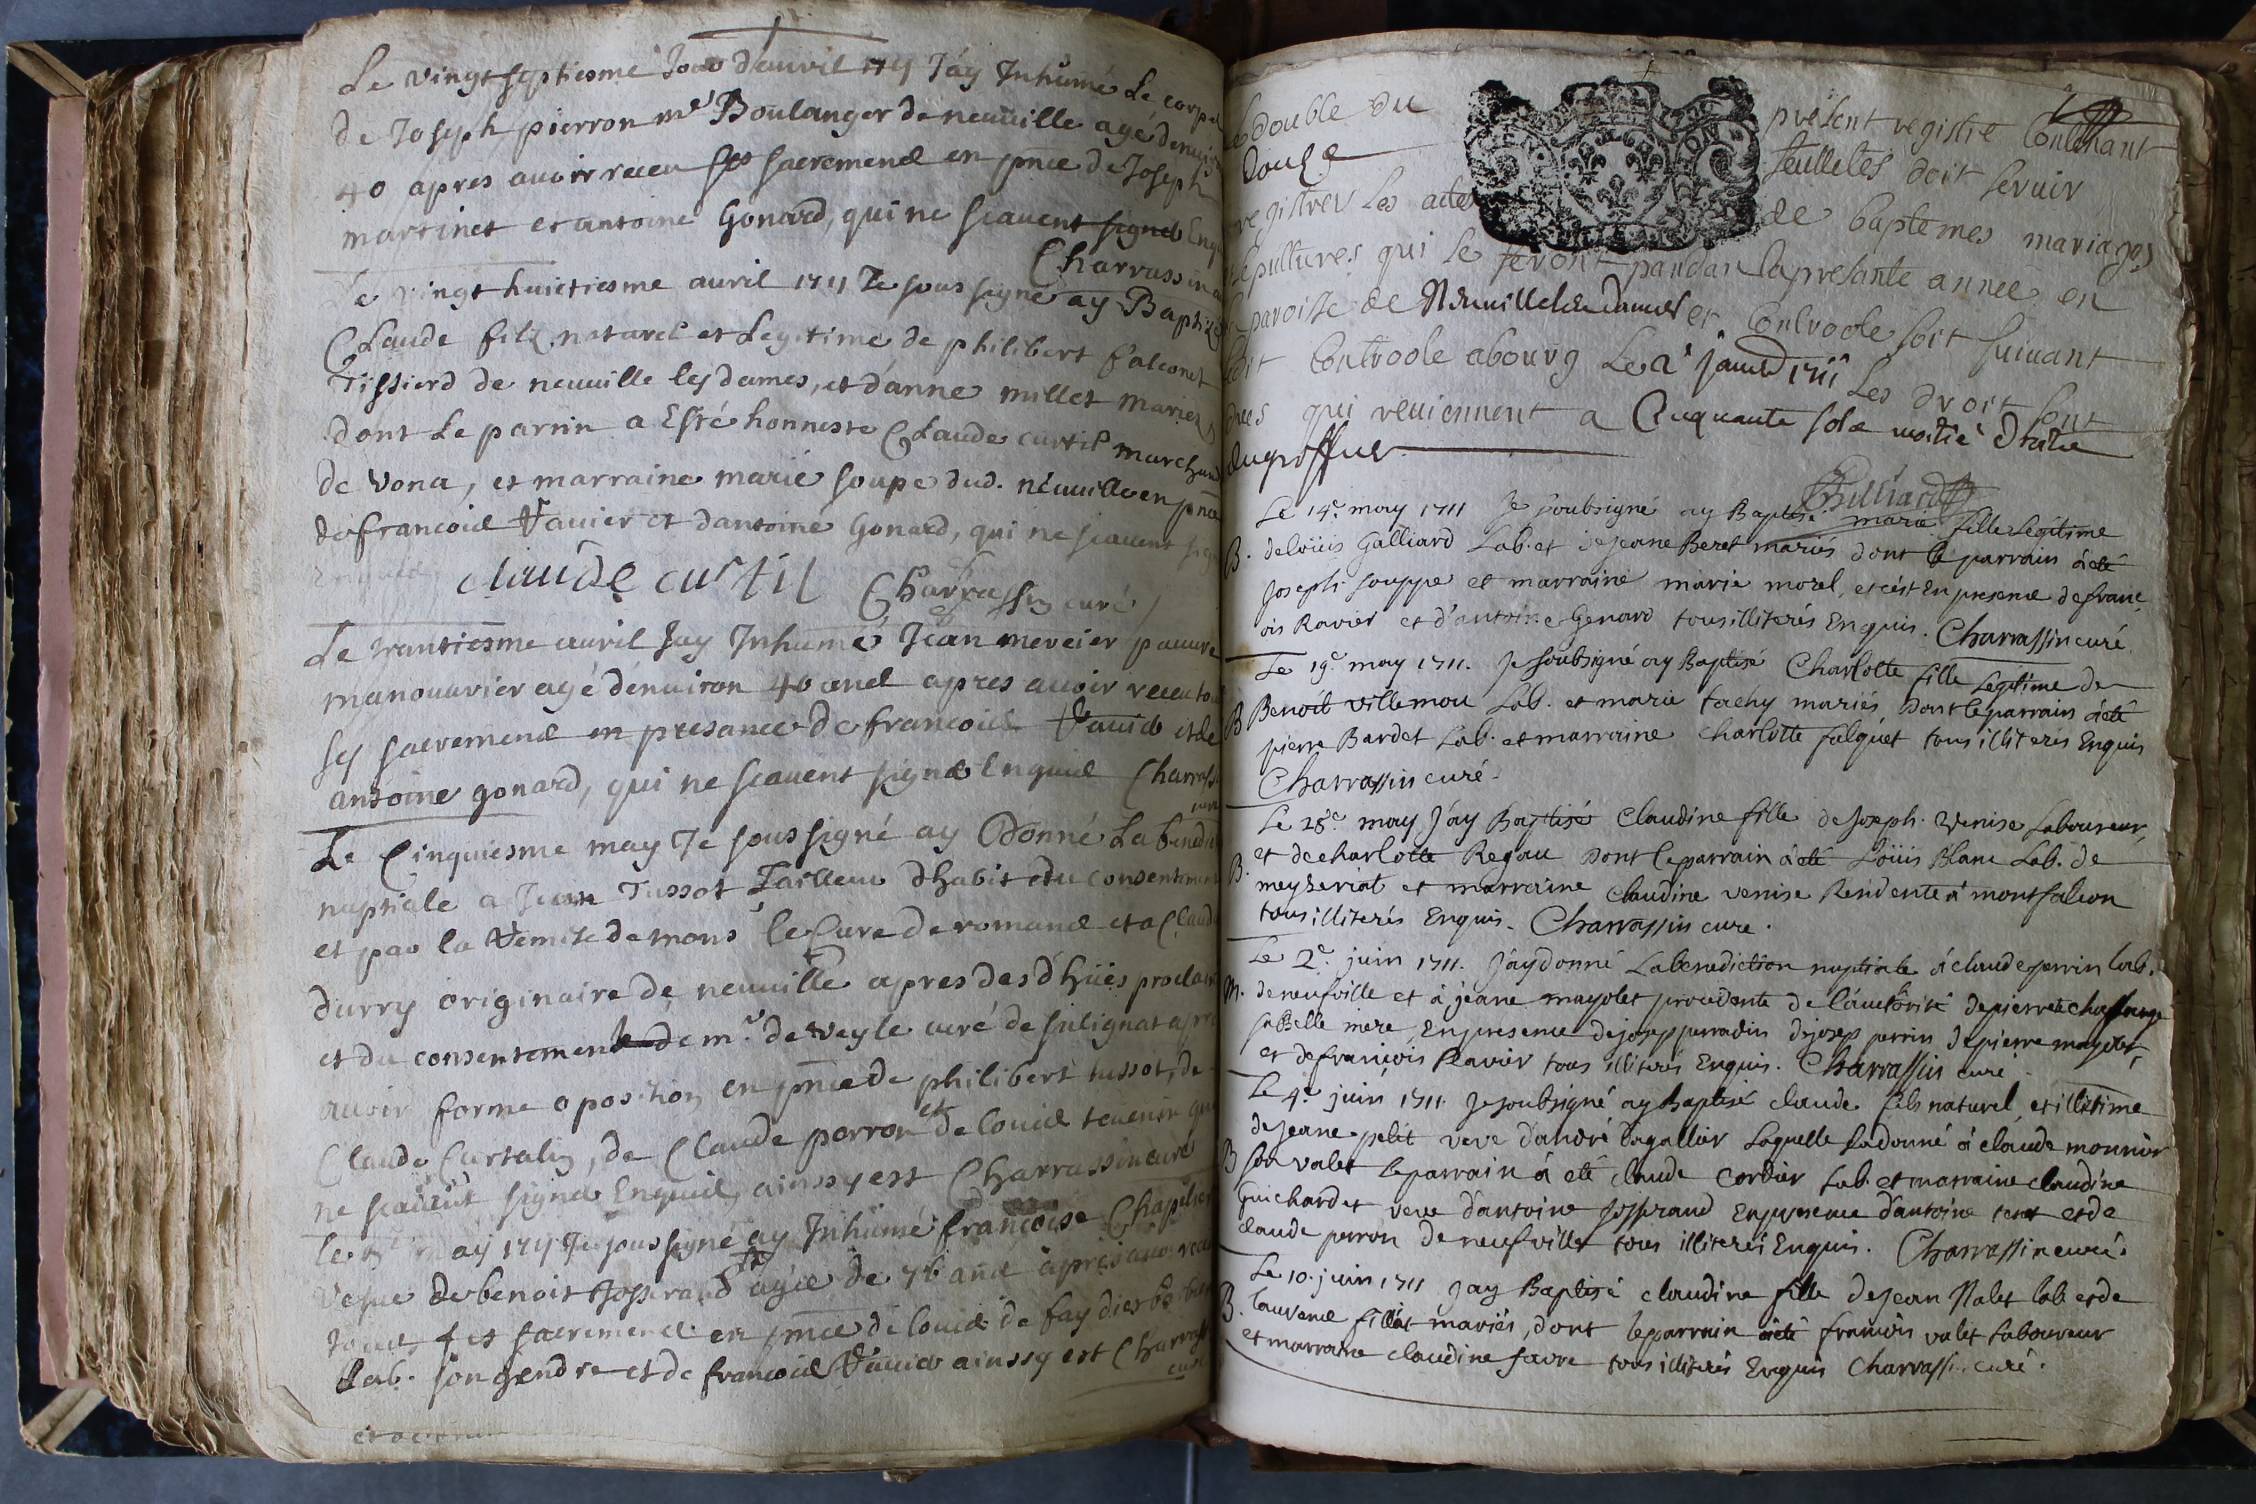 Le vingt septiesme Jour dauvril 1711 J'áy Inhumé Le corps
de Joseph pierron me Boulanger de neuville agé denviron
40 apres avoir receu ses sacremens en pnce de Joseph
martinet et antoine Gonard, qui ne scavent signes Enq
Charrassin
Le vingt huictiesme avril 1711 Je sous signe ay Baptize
Claude filz naturel et Legitime de philibert falconet
Tissierd de neuville les dames, et d'anne millet maries
dont Le parrin a Esté honneste Claude curtil marchand
de vona, et marraine marie soupe dud. neuville en pnce
de francois Ravier et dantoine Gonard, qui ne scavent sig
Enquis
claude curtil Charrassin curé
Le trantiesme avril Jay Inhumé Jean mercier pauvre
manouvrier agé d'environ 40 ans apres avoir receu to
ses sacremens en presance de francois Ravier et de
antoine gonard, qui ne scavent signe Enquis Charrass
curé
Le Cinquiesme may Je sous signé ay Donné La bened
nuptiale a Jean Tussot Tailleur d'habit du consentement
et par la Remise de mons le Cure de romans et a Claud
durry originaire de neuville apres des d'hües procla
et du consentement de mr. de veyle curé de sulignat apres
avoir forme oposition en pnce de philibert tussot, de
Claude Curtalin, de Claude perron et de louis tevenin qui
ne scavent signe Enquis, ainssy est Charrassin curé
may 1711 Je sous signé ay Inhumé francoise Chapu
vefue de benoit Josserand agée de ans apres avoir rece
touts ses sacremens en pnce de louis de fay
Lab. son gendre et de francois Ravier ainssy est Charrass
curé
Le double du present registre Contenant
Douse feulletes doit servir
registrer Les actes de baptemes mariages
sepultures qui se feront pandan la presante année en
paroisse de Neuville les dames et Controole soit suivant
Edit Controole a bourg Le 2e janvr 1711 Les droit sont
dues qui reviennent a Cinquante sols moitie
du greffier
Le 14e. may 1711 Je soubsigné ay Baptisé marie fille Legitime
B. de Loüis Galliard Lab. et de jeane Beret mariés dont le parrain à eté
Joseph souppe et marraine marie morel, et c'est En presence de franc
ois Ravier et d'antoine Genard tous illiterés Enquis. Charrassin curé.
Le 19e. may 1711. Je soubsigné ay Baptisé Charlotte fille Legitime de
B Benoît villemou Lab. et marie tachy mariés Dont le parrain à eté
pierre Bardet Lab. et marraine charlotte falquet tous illiterés Enquis
Charrassin curé.
Le 28e. may J'áy Baptisé Claudine fille de Joseph Venise Laboureur,
B. et de charlotte Regau Dont le parrain à eté Loüis Blanc Lab. de
meyseriat et marraine claudine venise Residente à montfalcon
tous illiterés Enquis. Charrassin curé.
Le 2e. juin 1711. J'ay donné La benediction nuptiale à claude perrin lab.
M. de neufville et à jeane mayolet procedente de L'auctorité de pierrete chaffange
sa Belle mere, En presence de josep perradin de josep perrin de pierre mayolet,
et de francois Ravier tous illiterés Enquis. Charrassin curé.
Le 4e. juin 1711. Je soubsigné ay Baptisé claude fils naturel et illitime
de jeane petit veve d'andré Dagallier Laquelle L'a donné à claude monnier
B son valet le parrain á eté claude Cordier Lab. et marraine claudine
Guichardet veve d'antoine Josserand En presence d'antoine et de
claude perron de neufville tous illiterés Enquis. Charrassin curé.
Le 10. juin 1711 Jay Baptisé claudine fille de jean Nalet lab et de
B. Laurence filliat mariés, dont le parrain à eté francois valet Laboureur
et marraine claudine favre tous illiterés Enquis Charrassin curé.